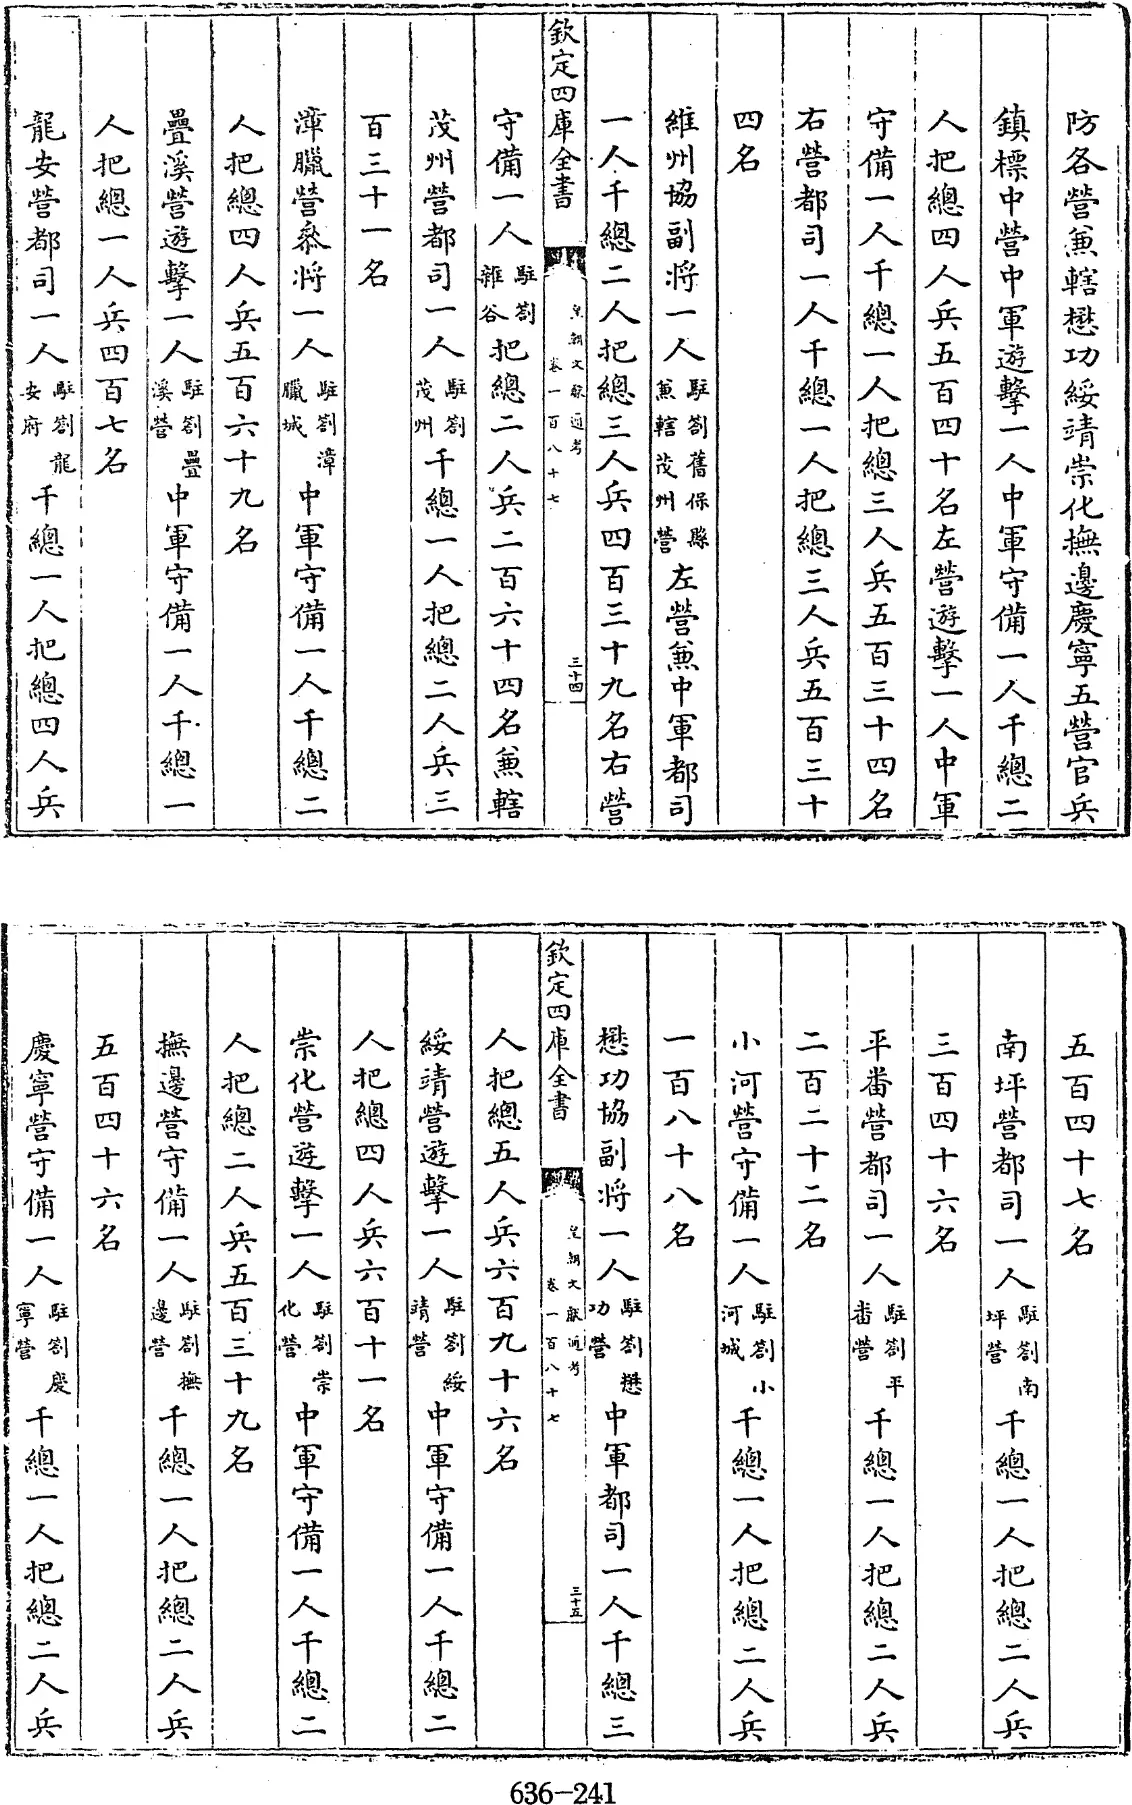 防各營兼轄懋功綏靖崇化撫邊慶寧五營官兵
鎮標中營中軍遊擊一人中軍守備一人千總二
人把總四人兵五百四十名左營遊擊一人中軍
守備一人千總一人把總三人兵五百三十四名
右營都司一人千總一人把總三人兵五百三十
四名
維州協副將一人駐劄舊保縣兼轄茂州營左營兼中軍都司
一人千總二人把總三人兵四百三十九名右營
欽定四庫全書
皇朝文獻通考
卷一百八十七
三十四
守備一人駐劄雜谷把總二人兵二百六十四名兼轄
茂州營都司一人駐劄茂州千總一人把總二人兵三
百三十一名
漳臘營叅將一人駐劄漳臘城中軍守備一人千總二
人把總四人兵五百六十九名
疊溪營遊擊一人駐劄疊溪營中軍守備一人千總一
人把總一人兵四百七名
龍安營都司一人駐劄龍安府千總一人把總四人兵
五百四十七名
南坪營都司一人駐劄南坪營千總一人把總二人兵
三百四十六名
平番營都司一人駐劄平番營千總一人把總二人兵
二百二十二名
小河營守備一人駐劄小河城千總一人把總二人兵
一百八十八名
懋功協副將一人駐劄懋功營中軍都司一人千總三
欽定四庫全書
皇朝文獻通考
卷一百八十七
三十五
人把總五人兵六百九十六名
綏靖營遊擊一人駐劄綏靖營中軍守備一人千總二
人把總四人兵六百十一名
崇化營遊擊一人駐劄崇化營中軍守備一人千總二
人把總二人兵五百三十九名
撫邊營守備一人駐劄撫邊營千總一人把總二人兵
五百四十六名
慶寧營守備一人駐劄慶寧營千總一人把總二人兵
636-241